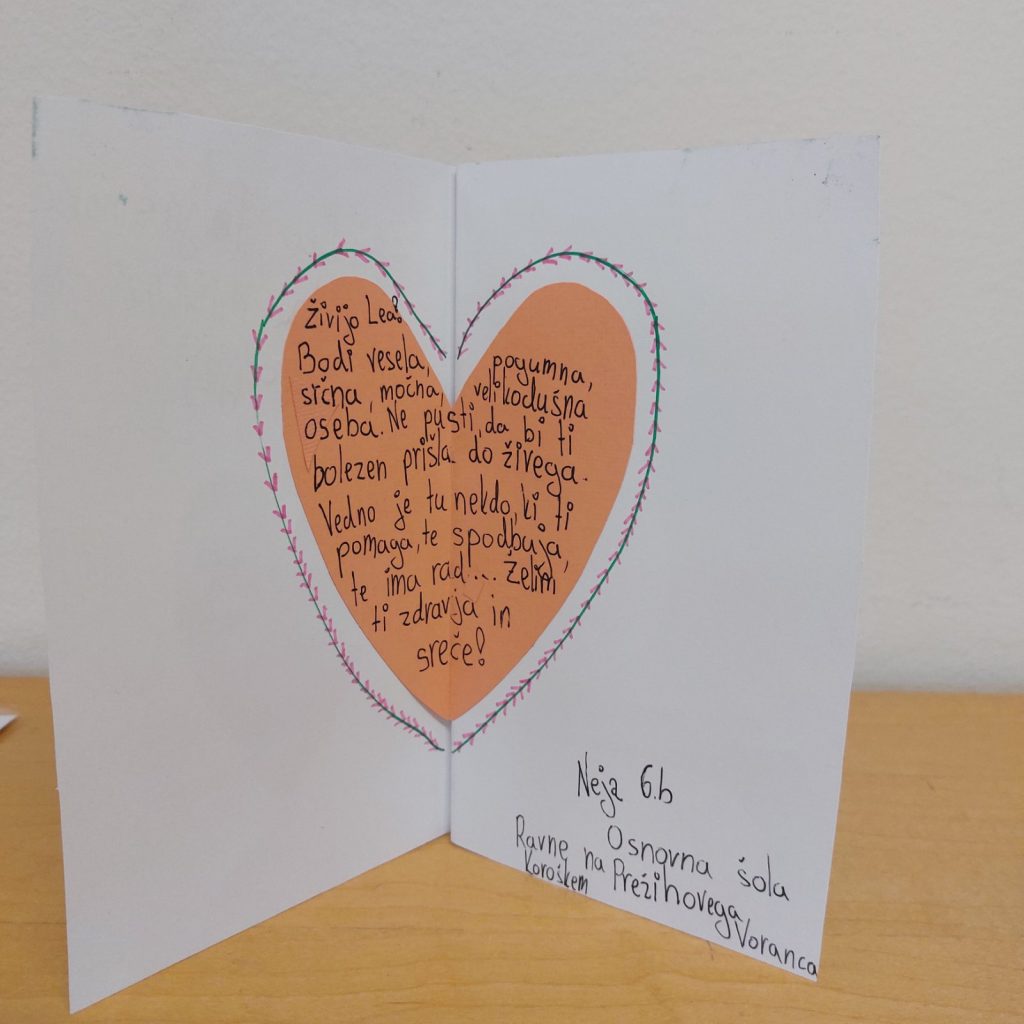 Živijo Lea!
Bodi vesela, pogumna,
srčna, močna velikodušna
oseba. Ne pusti, da bi ti
bolezen prišla do živega.
Vedno je tu nekdo, ki ti
pomaga, te spodbuja,
te ima rad... Želim
ti zdravja in
sreče!
Neja 6.b
Osnovna šola
Prežihovega
Voranca
Ravne na
Koroškem